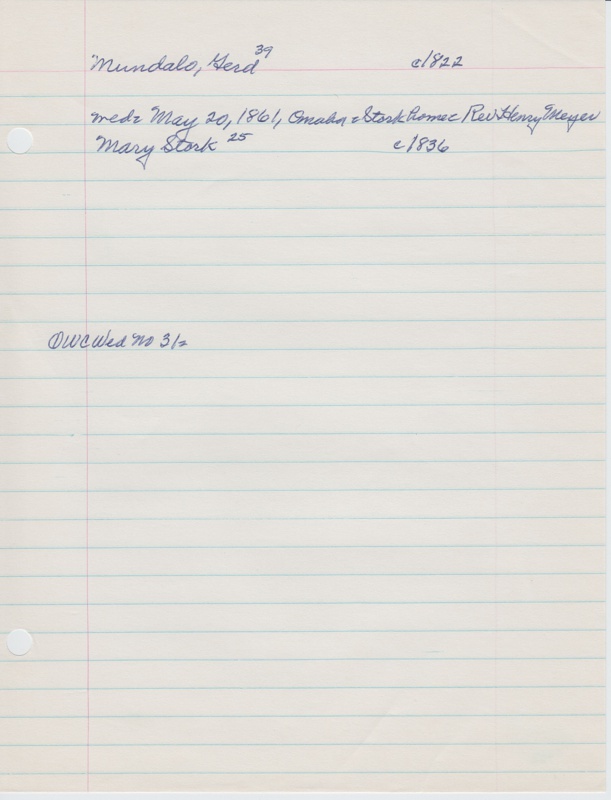 Mundalo, Gerd 39 c1822
wed: May 20, 1861, Omaha: Stork home: Rev Henry Meyer
Mary Stork 25 c1836
OWC Wed No 312